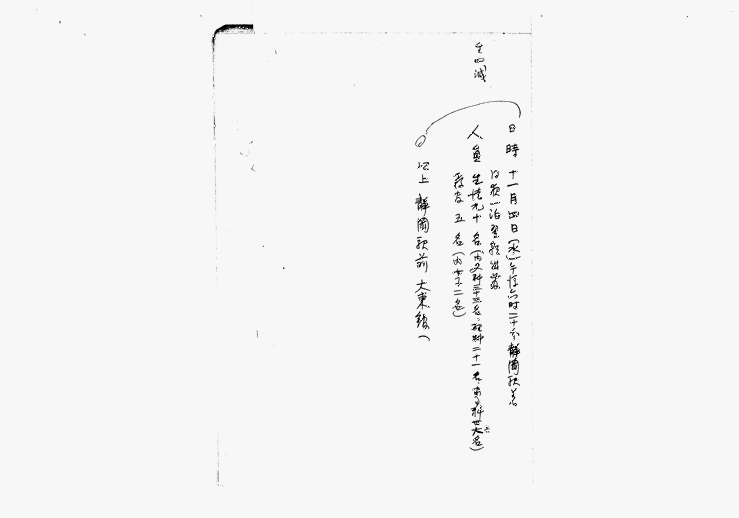 日時 十一月四日(水)午後六時二十分静岡駅着
同夜一泊翌朝出発
人員 生徒九十名(内文科三十三名、理科二十一名、東文科卅六名)
教官 五名(内女子二名)
以上 静岡駅前大東館へ